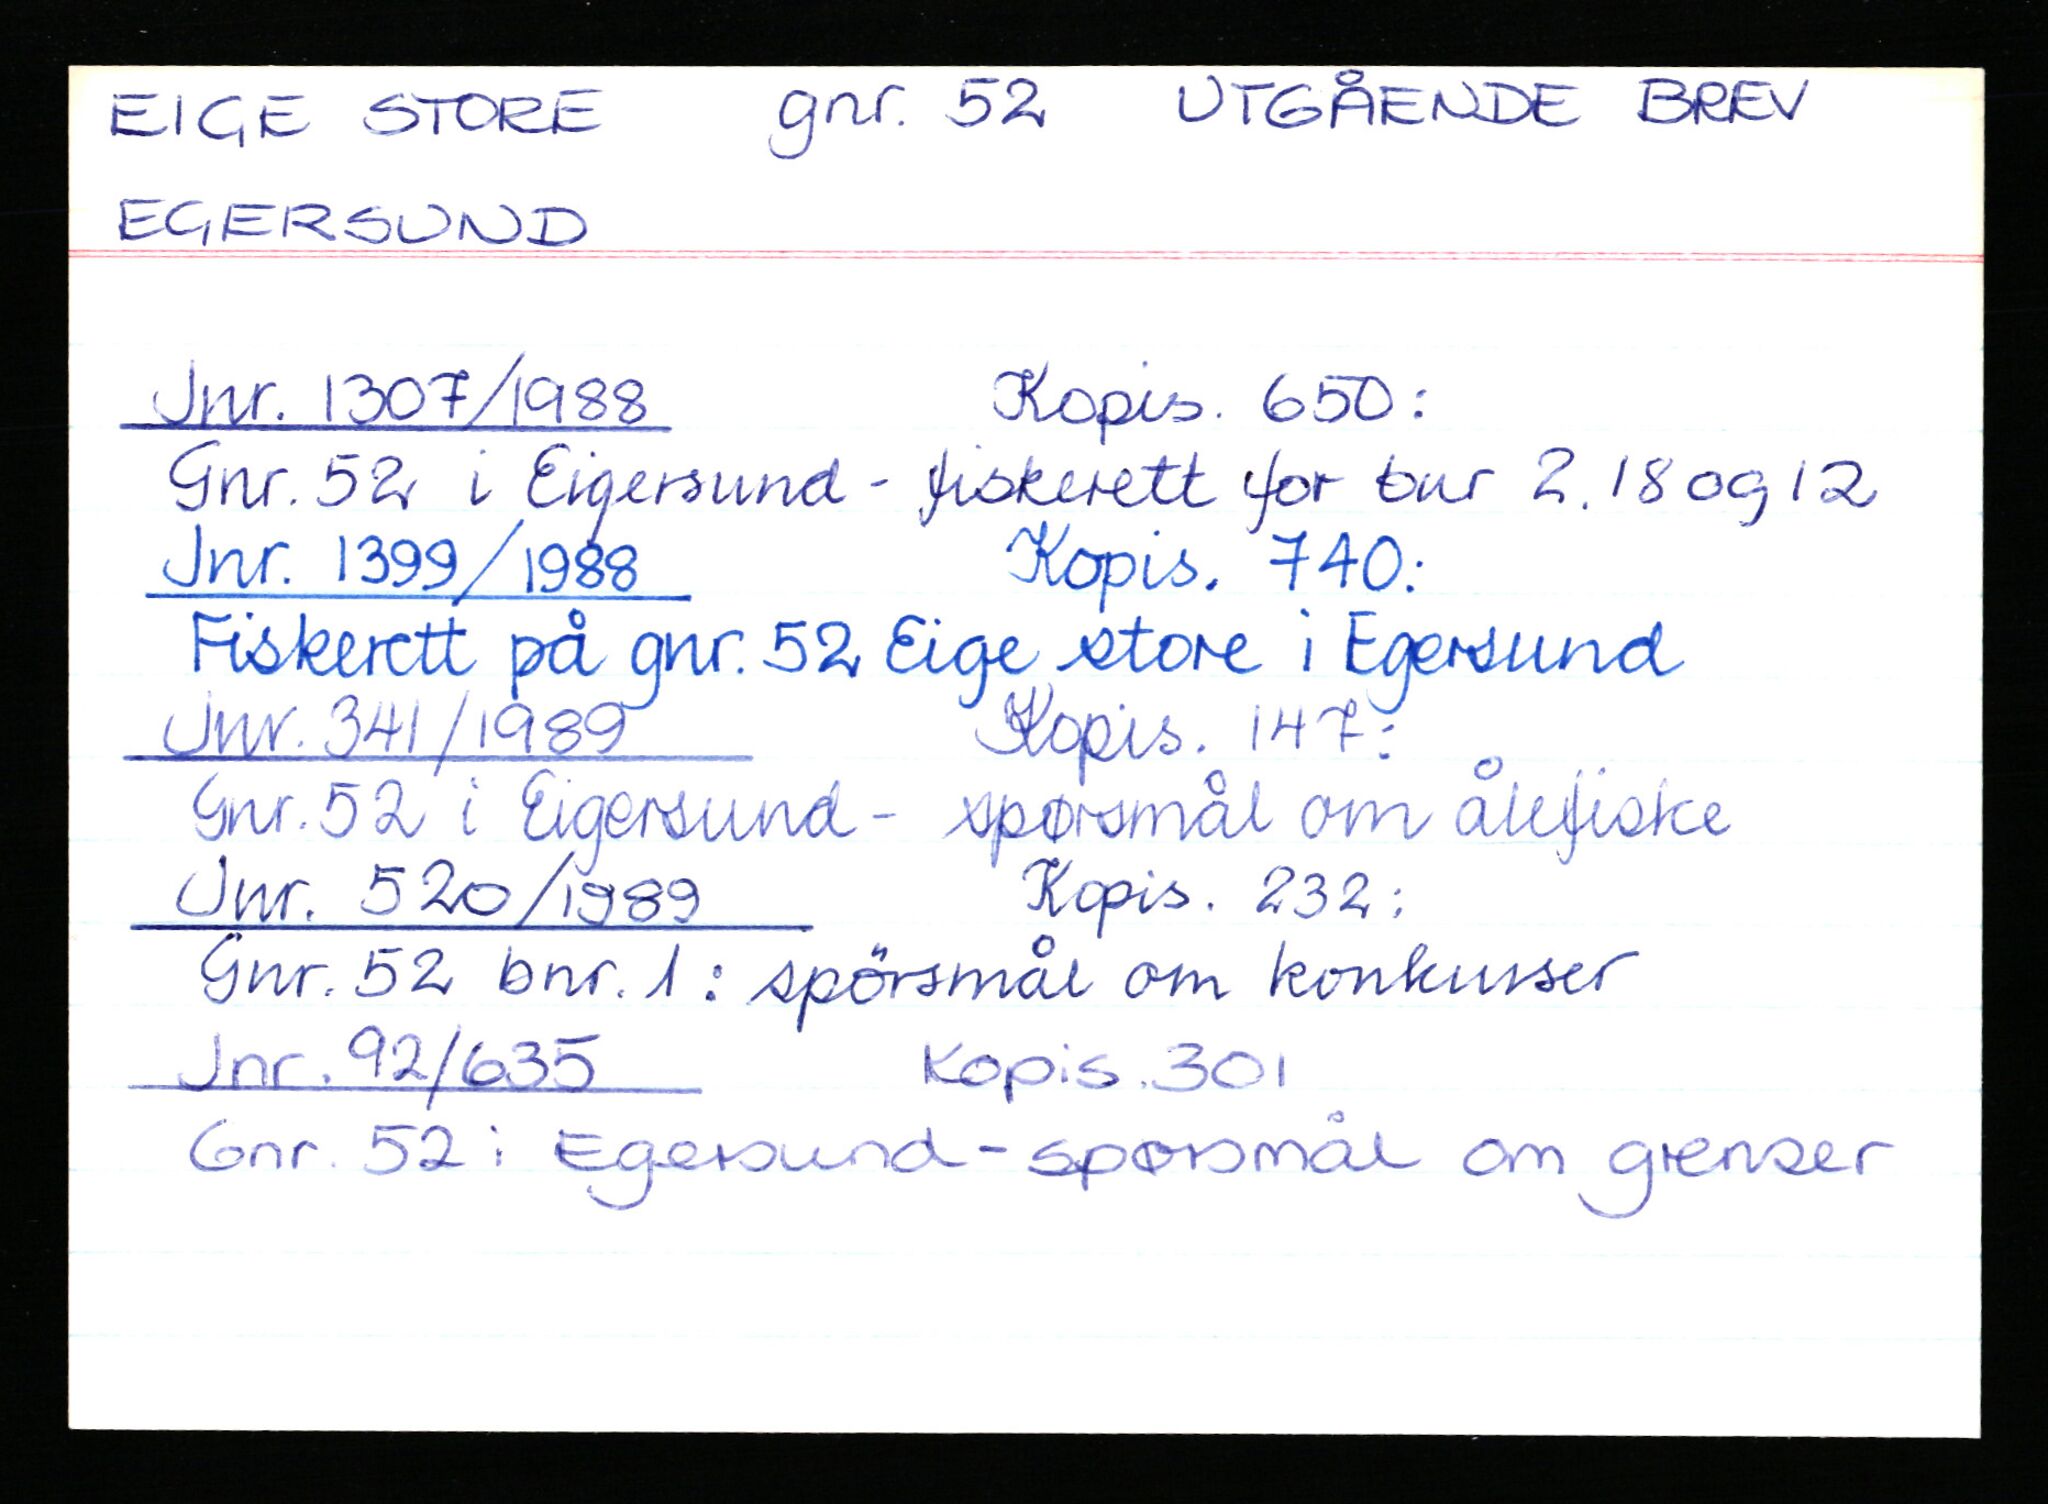 EIGE STORE gnr. 52 UTGÅENDE BREV
EGERSUND
Jnr. 1307/1988 Kopis. 650:
Gnr. 52 i Eigersund - fiskerett for bnr 2, 18 og 12
Jnr. 1399/1988 Kopis. 740:
Fiskerett på gnr. 52 Eige store i Egersund
Jnr. 341/1989 Kopis. 147:
Gnr. 52 i Eigersund - spørsmål om ålefiske
Jnr. 520/1989 Kopis. 232:
Gnr. 52 bnr. 1: spörsmål om konkurser
Jnr. 92/635 Kopis. 301
Gnr. 52 i Egersund - spørsmål om grenser